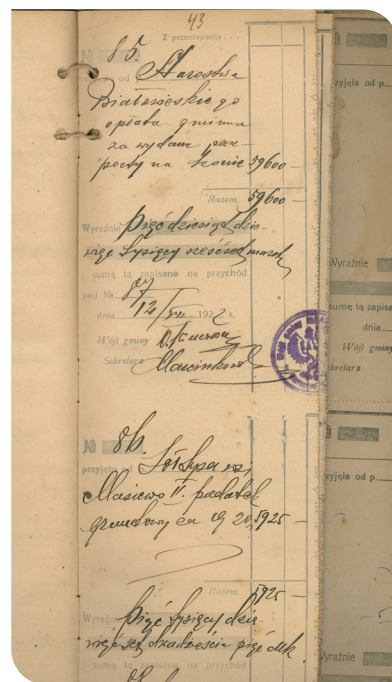 43
Z przeniesienia
85.
od Starostwa
Białowieskiego
opłata gminna
za wydane pasz-
porty na konie 59600 -
Razem 59600 -
Wyraźnie Pięćdziesiąt dzie-
więć tysięcy sześćset marek
sumę tą zapisano na przychód
pod №
dnia 12/VII 1922 r.
Wójt gminy
Sekretarz Marcinkowski
№ 86.
przyjęto od Sołtysa wsi
Masiewo II. podatek
gruntowy za 1920, 5925 -
Razem 5925 -
Wyraźnie Pięć tysięcy dzie-
więćset dwadzieścia pięć mk.
sumę tą zapisano na przychód
№
rzyjęto od p
Wyraźnie
sumę tą zapisa
dnia
Wójt g
kretarz
№
rzyjęto od p
Wyraźnie